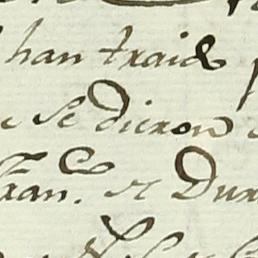 han traido
Se dieron
Fran.co
Dur